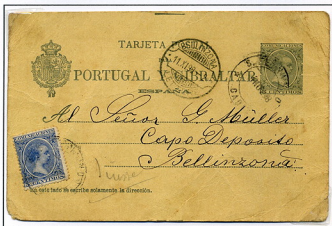 TARJETA
PORTUGAL Y GIBRALTAR
ESPAÑA
Al Señor G. Müller
Capo Deposito
Bellinzona
Suisse
En este lado se escribe solamente la dirección.